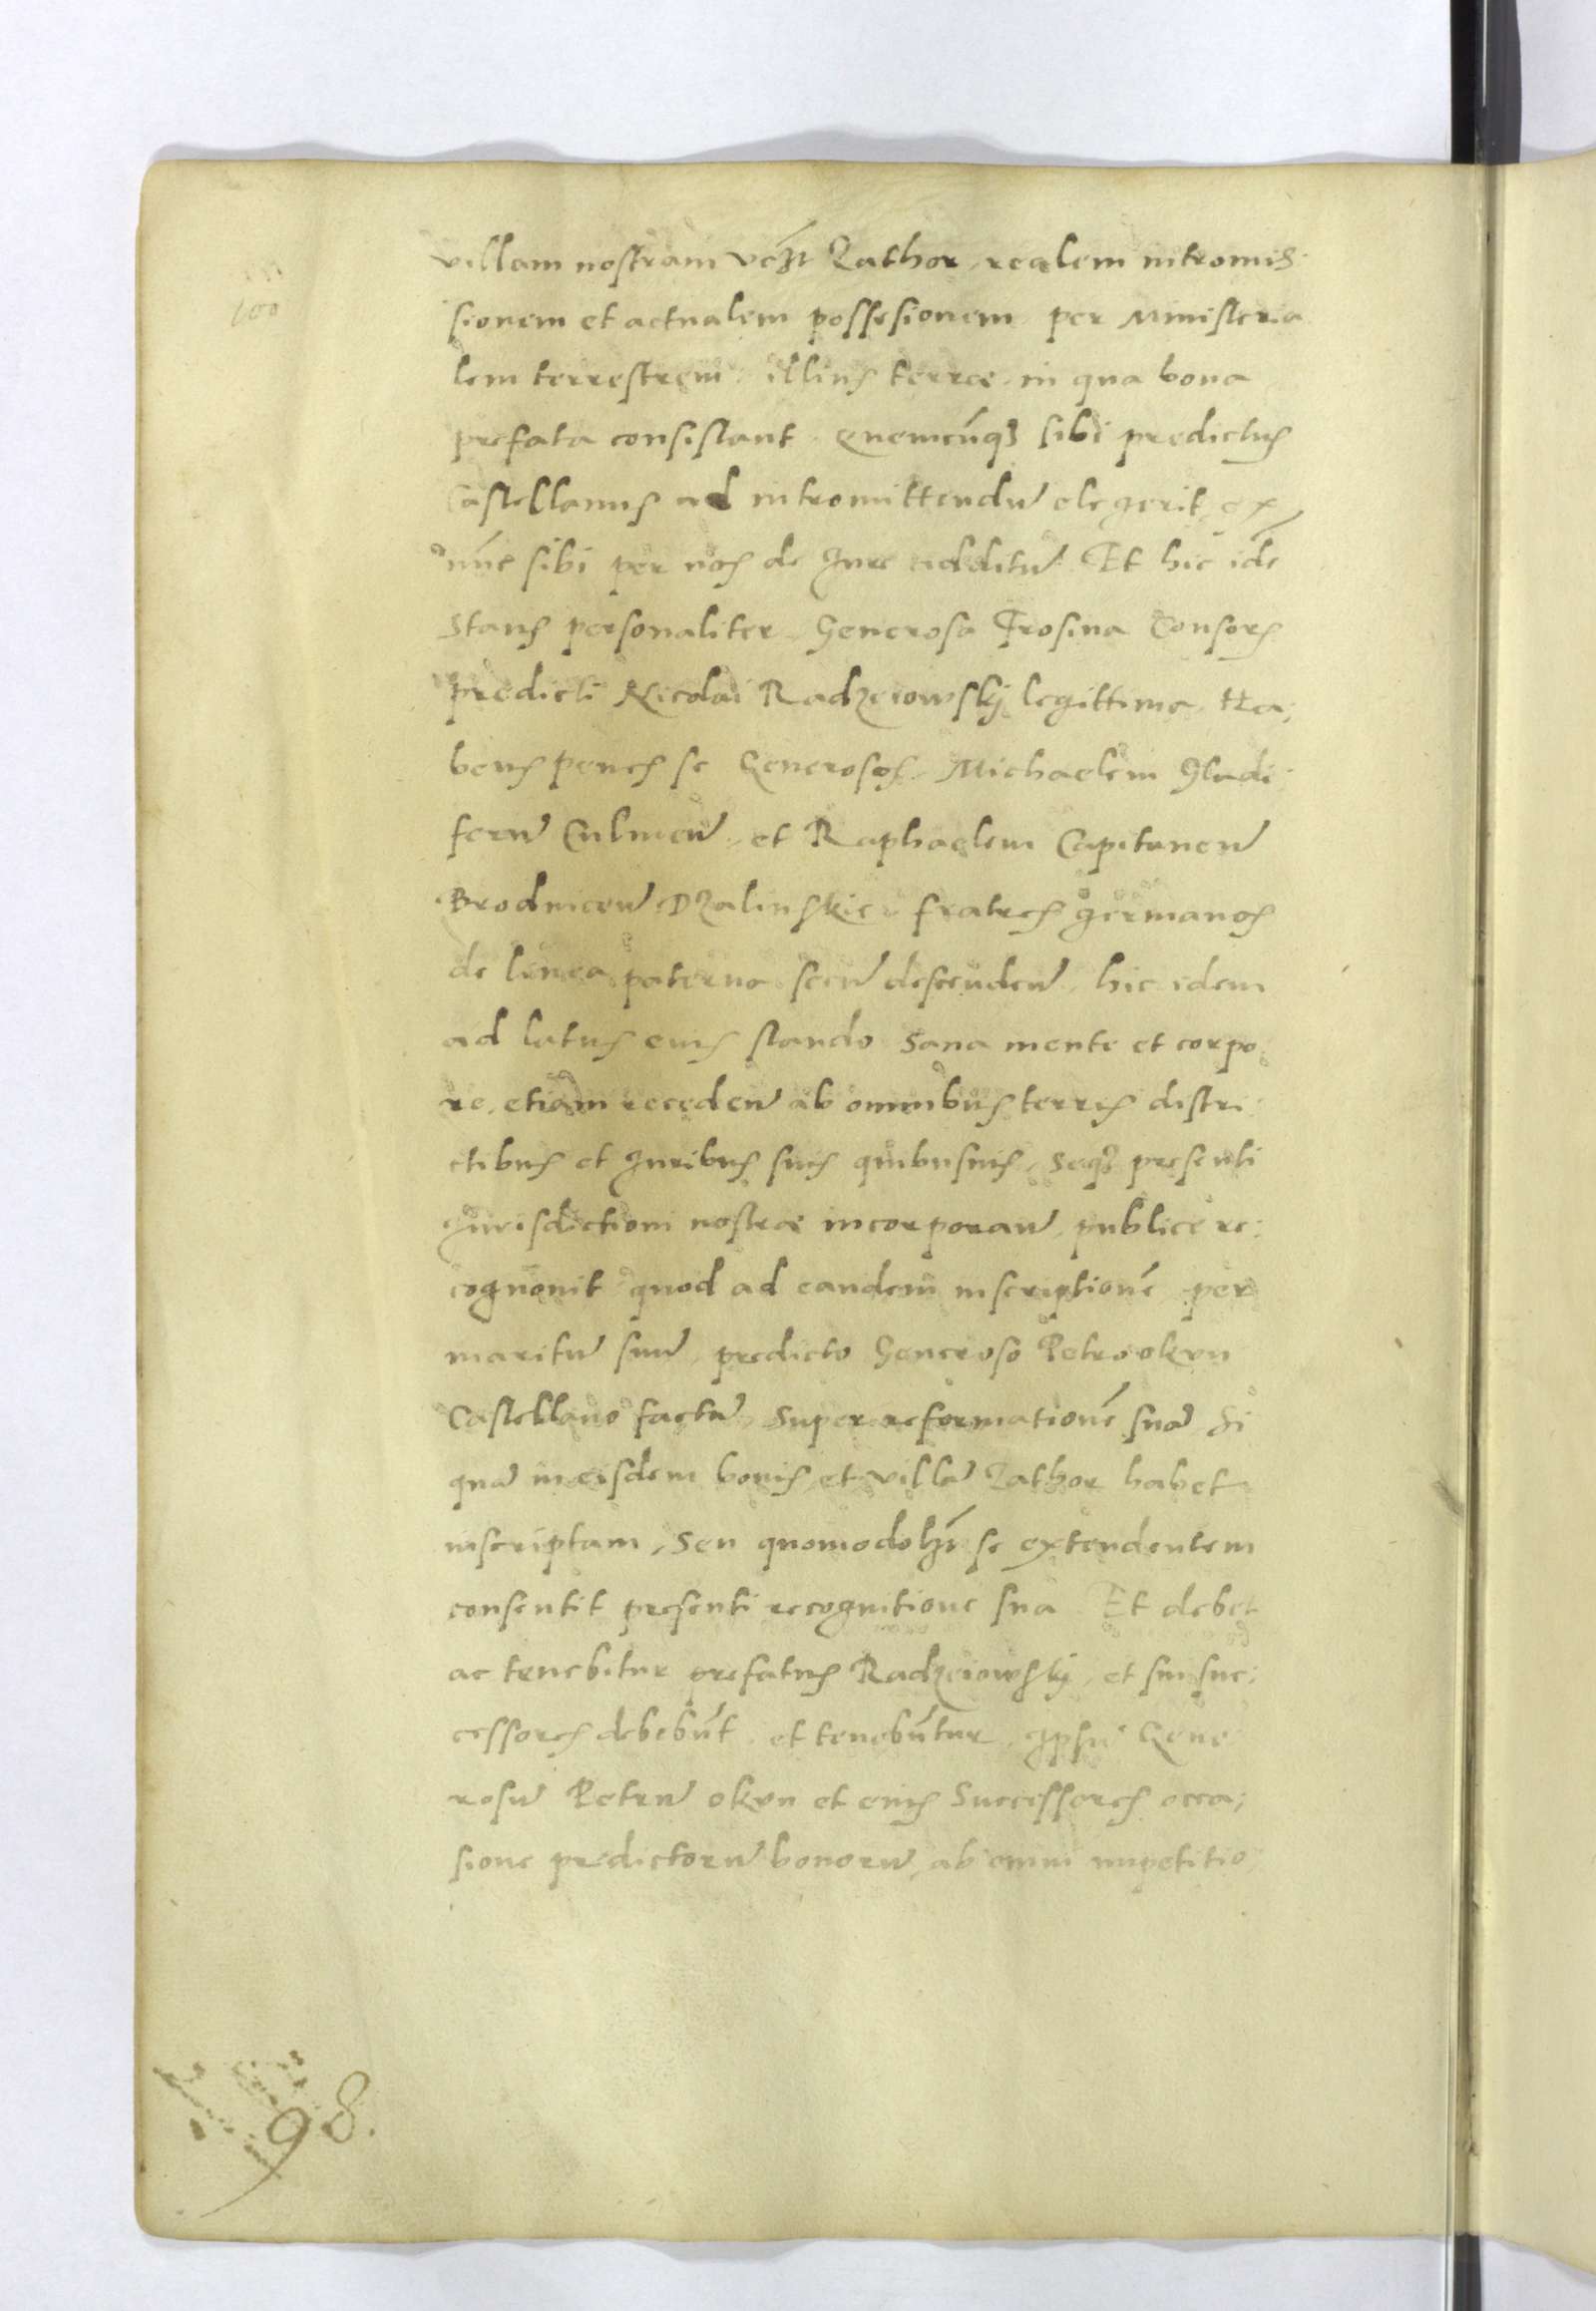 100
villam nostram vczt Zathor, realem intromis
sionem et actualem possesionem per Ministeria
lem terrestrem illius terrae in qua bona
prefata consistant. Quemcūq3 sibi predictus
Castellanus ad intromittendū elegerit, ex
nūc sibi per nos de Jure additū. Et hic idē
Stans personaliter, Generosa Frosina Consors
predicti Nicolai Radzeiowskij legittima. Ha:
bens penes se Generosos, Michaelem Gladi
ferū Culmeñ, et Raphaelem Capitaneū
Brodniceñ Dzalinskie fratres germanos
de linea paterna secū descendeñ, hic idem
ad latus eius stando sana mente et corpo:
re, etiam recedeñ ab omnibus terris distri
ctibus et Juribus suis quibusuis, Seq3 presenti
Jurisdictioni nostrae incorporañ, publice re:
cognouit quod ad eandem inscriptionē per
maritū suū, predicto Generoso Petro okvn
Castellano factā, Super reformationē suā si
quā in eisdem bonis, et villā Zathor habet
inscriptam, Seu quomodolźt se extendentem
consentit presenti recognitione sua. Et debet
ac tenebitur prefatus Radzeiowskij, et sui suc:
cessores debebūt, et tenebūtur, Jpsū Gene
rosū Petrū okvn et eius Successores occa:
sione predictorū bonorū, ab omni impetitio:
98.